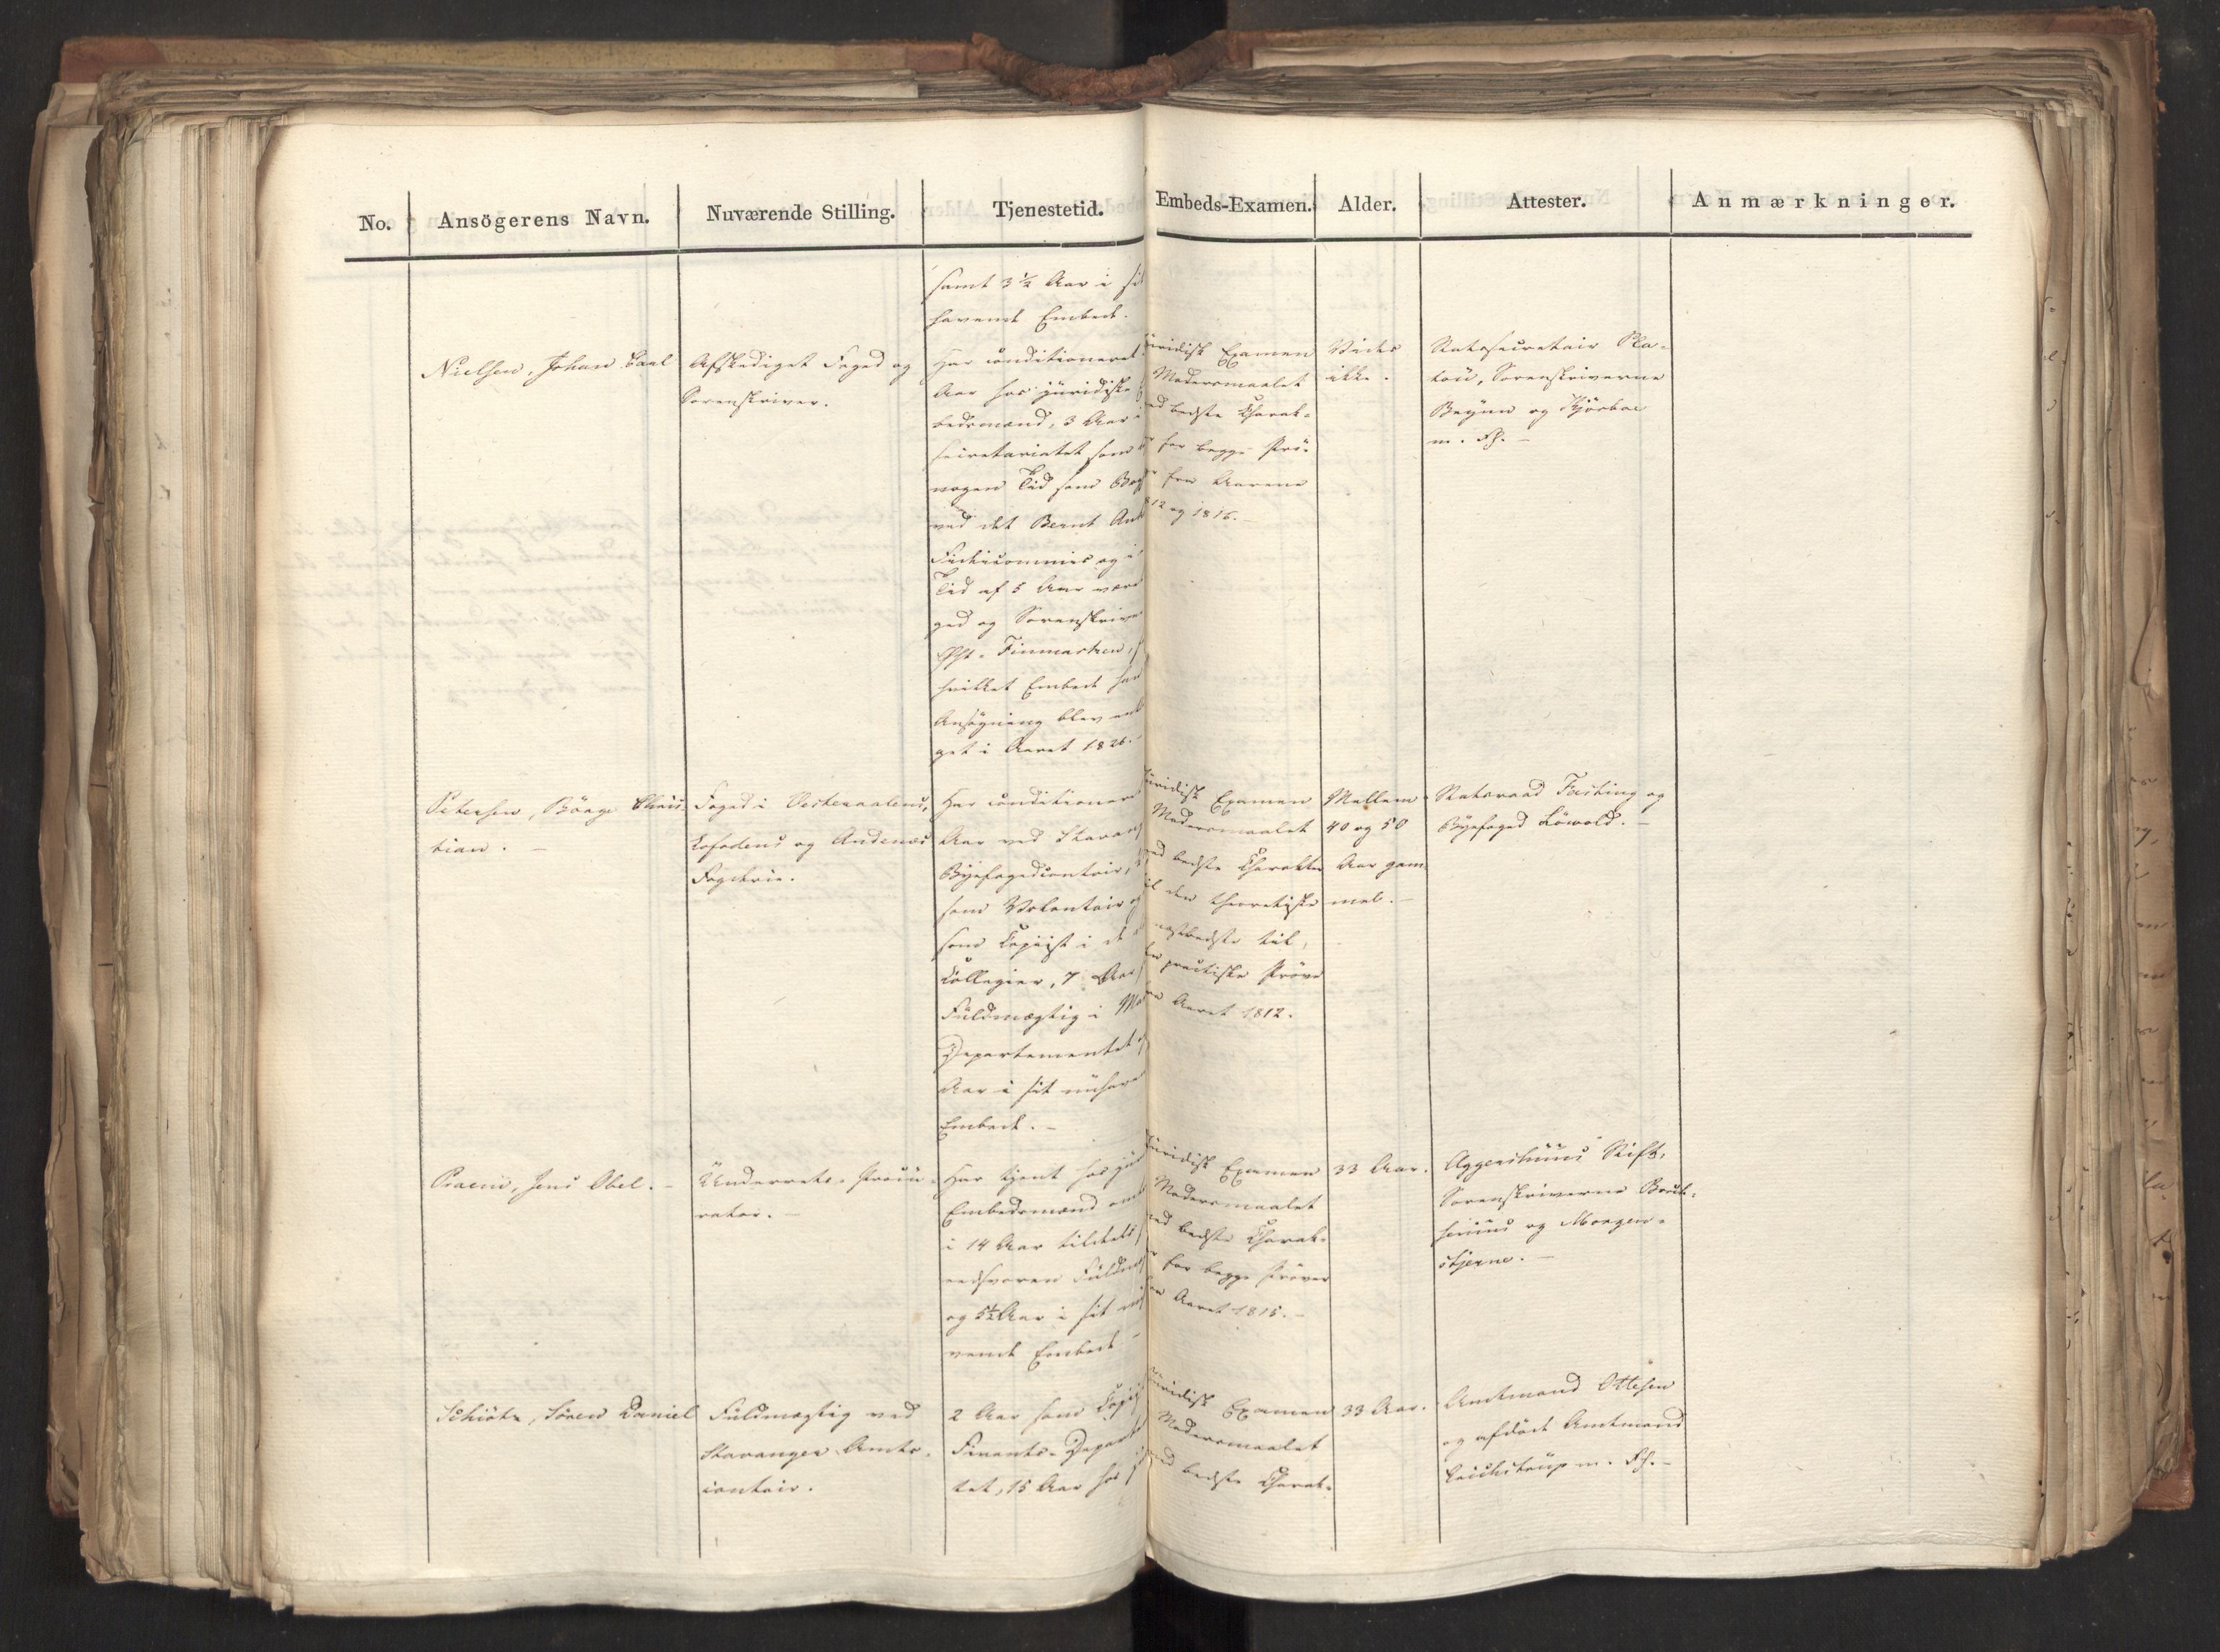 No.
Ansögerens Navn.
Nuværende Stilling.
Tjenestetid.
Embeds-Examen.
Alder.
Attester.
Anmærkninger.
samt 3½ Aar i sit
havende Embede.
Nielsen, Johan Carl
Afskediget Foged og
Sorenskriver.
Har conditioneret
Aar hos juridiske
bedsmænd, 3 Aar i
secretariatet som
nogen Tid som
ved det Bernt Ank
Fideicommis og i
Tid af 5 Aar være
ged og Sorenskriver
Øst-Finmarken,
hvilket Embede han
Ansögning blev ent
get i Aaret 1826.
juridisk Examen
Modersmaalet
ed bedste Charak-
for begge Prö-
fra Aarene
812 og 1816.
Vides
ikke.
Statssecretair Pla-
tou, Sorenskriverne
Beyer og Kjörboe
m. Fl.
Petersen, Börge Chris-
tian.
Foged i Vesteraalens,
Lofodens og Andenæs
Fogderie.
Har conditioneret
Aar ved Stavang
Byefogedcontoir,
som Volontair og
som Copiist i de
Collegier, 7 Aar
Fuldmægtig i
Departementet
Aar i sit nuhave
Embede.
juridisk Examen
Modersmaalet
ed bedste Charakter
il den theoretiske
næstbedste til
en practiske Pröve
Aaret 1812.
Mellem
40 og 50
Aar gam-
mel.
Statsraad Fasting og
Byefoged Löwold.
Praem, Jens Obel.
Underrets-Procu-
rator.
Har tjent hos jur
Embedsmænd om
i 14 Aar tildels
eedsvoren Fuldm
og 5½ Aar i sit nuh
vende Embede
juridisk Examen
Modersmaalet
ed bedste Charak-
for begge Pröver
Aaret 1815.
33 Aar.
Aggershuus Stift,
Sorenskriverne Brock-
huus og Morgen-
stjerne.
Schiötz, Sören Daniel
Fuldmægtig ved
Stavanger Amts-
contoir.
2 Aar som Copi
Finants-Departe
tet, 15 Aar hos
juridisk Examen
Modersmaalet
ed bedste Charak-
33 Aar.
Amtmand Ottesen
og afdöde Amtmand
m. Fl.